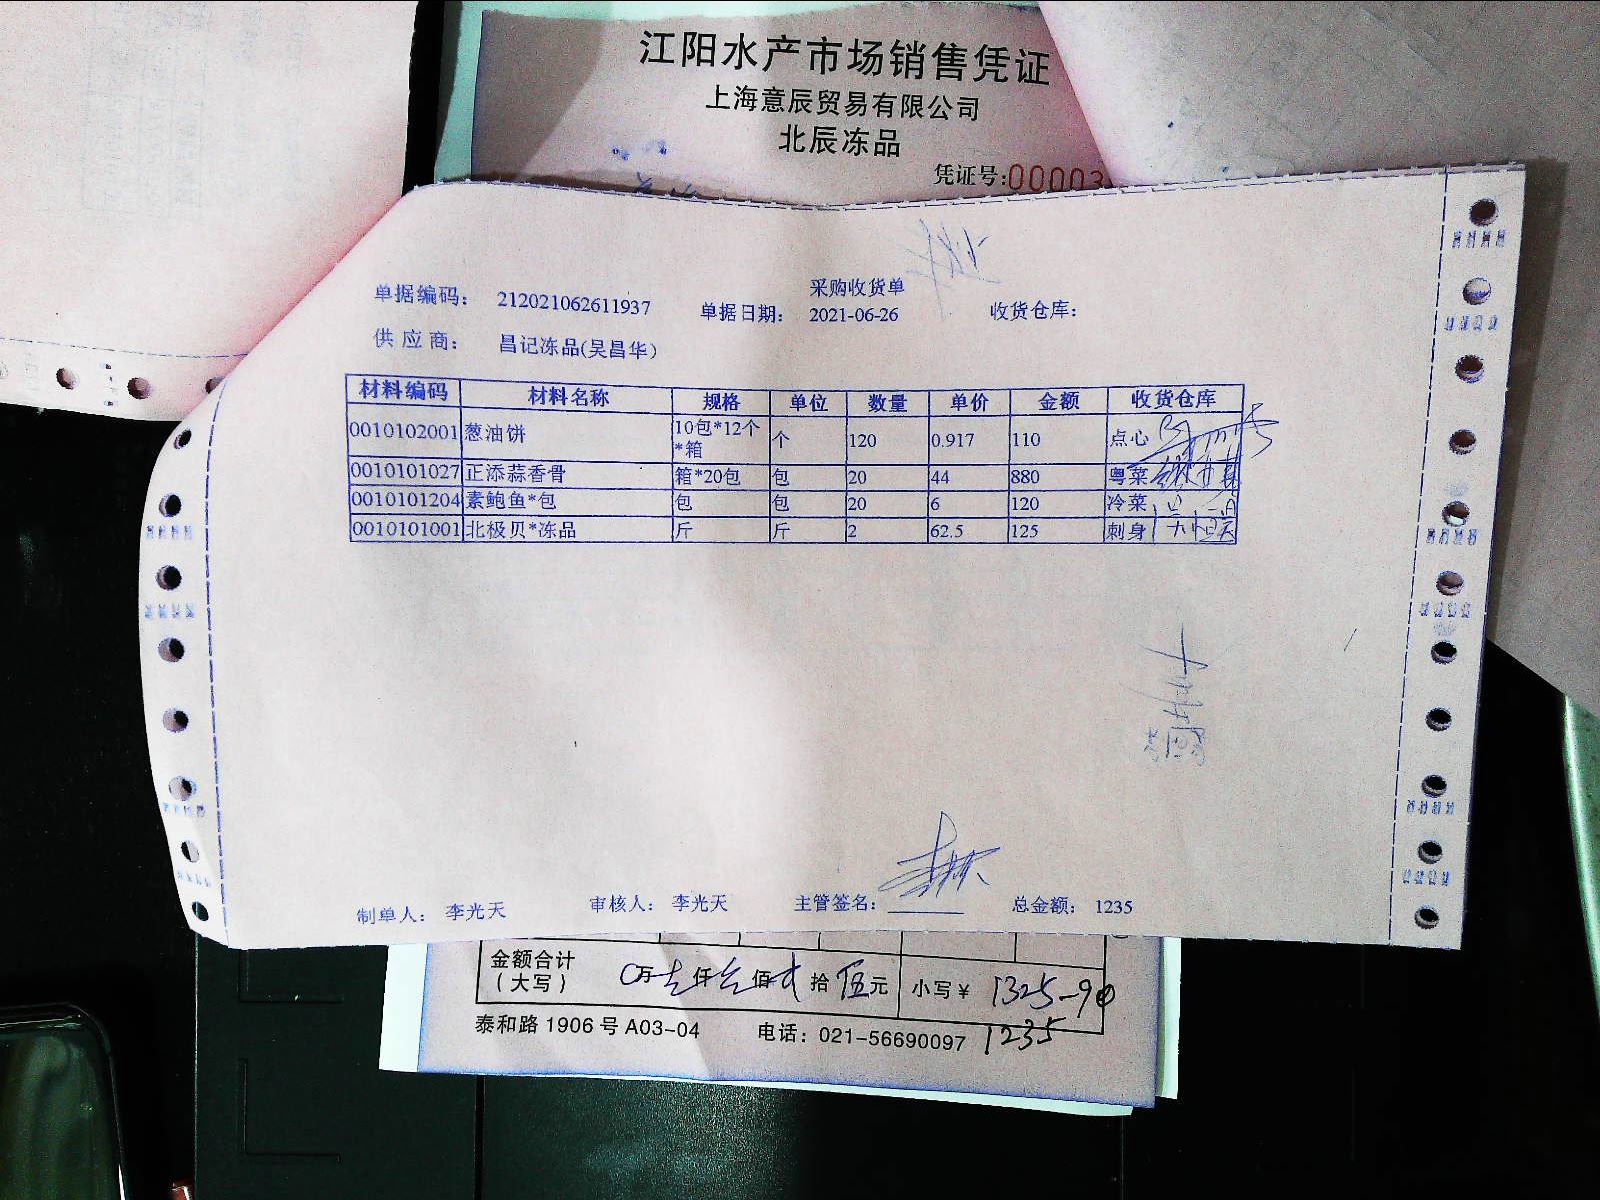 江阳水产市场销售凭证
上海意辰贸易有限公司
北辰冻品
凭证号:00003
采购收货单
单据编码： 212021062611937 单据日期： 2021-06-26 收货仓库：
供应商： 昌记冻品(吴昌华)
材料编码 材料名称 规格 单位 数量 单价 金额 收货仓库
0010102001 葱油饼 10包*12个*箱 个 120 0.917 110 点心
0010101027 正添蒜香骨 箱*20包 包 20 44 880 粤菜
0010101204 素鲍鱼*包 包 包 20 6 120 冷菜
0010101001 北极贝*冻品 斤 斤 2 62.5 125 刺身
制单人： 李光天 审核人： 李光天 主管签名： 总金额： 1235
金额合计（大写） 0万 仟 佰 拾 伍元 小写￥ 1325-90
泰和路1906号A03-04 电话：021-56690097 1235